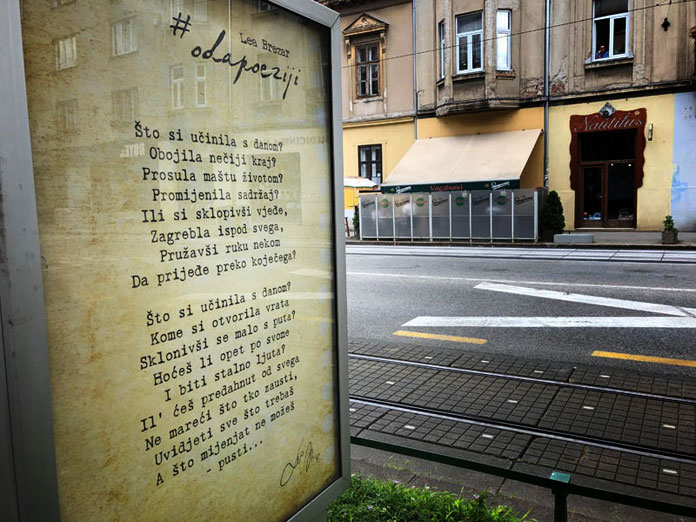 Lea Brezar
#odapoeziji
Što si učinila s danom?
Obojila nečiji kraj?
Prosula maštu životom?
Promijenila sadržaj?
Ili si sklopivši vjeđe,
Zagrebla ispod svega,
Pružavši ruku nekom
Da prijeđe preko koječega?
Što si učinila s danom?
Kome si otvorila vrata
Sklonivši se malo s puta?
Hoćeš li opet po svome
I biti stalno ljuta?
Il' ćeš predahnut od svega
Ne mareći što tko zausti,
Uvidjeti sve što trebaš
A što mijenjat ne možeš
- pusti...
Nautilus